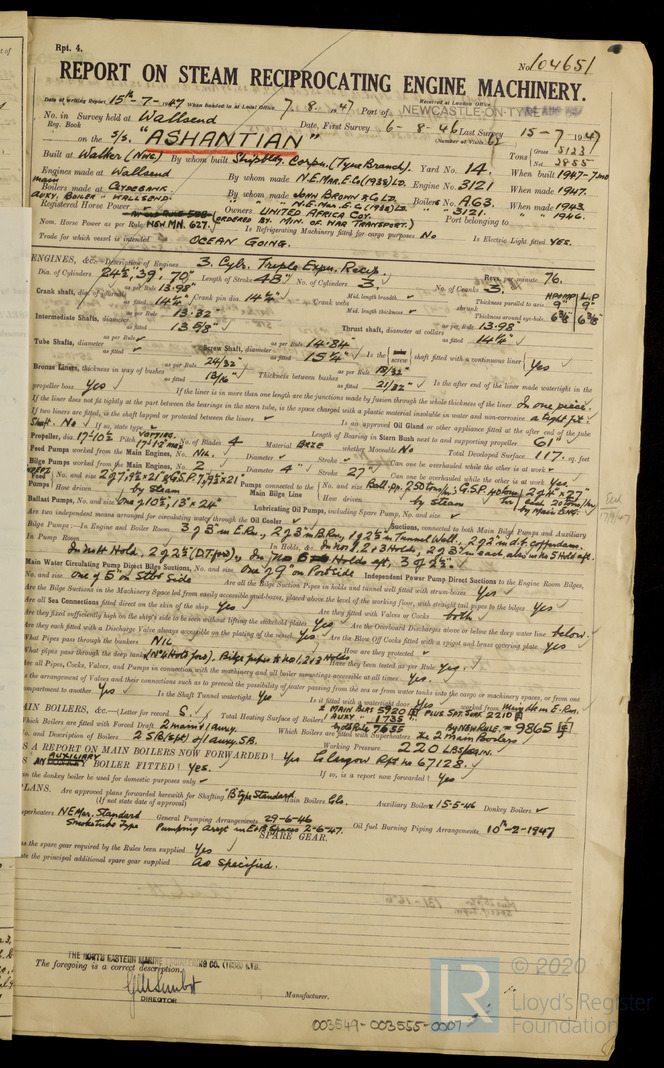 Rpt. 4.
No 104651
REPORT ON STEAM RECIPROCATING ENGINE MACHINERY.
Received at London Office
Date of writing Report 15th-7-1947 When handed in at Local Office 7.8.1947 Port of NEWCASTLE-ON-TYNE
No. in Survey held at Wallsend Date, First Survey 6-8-46 Last Survey 15-7-1947
Reg. Book (Number of Visits 62)
on the S/S. "ASHANTIAN" Tons Gross 5123 Net 2855
Built at Walker (N/c) By whom built Shipbldg. Corpn. (Tyne Branch). Yard No. 14. When built 1947-7mo
Engines made at Wallsend By whom made N.E. Mar. E. Co (1938) LD. Engine No. 3121 When made 1947.
main Boilers made at CLYDEBANK By whom made JOHN BROWN & Co LD. Boilers No. AG3. When made 1943
AUXY. BOILER " WALLSEND. " " N.E. Mar. E. Co (1938) LD. " 3121. " " 1946.
Registered Horse Power Owners UNITED AFRICA COY. Port belonging to
(ORDERED BY. MIN. OF WAR TRANSPORT.)
Nom. Horse Power as per Rule NEW MN. 627. Is Refrigerating Machinery fitted for cargo purposes No Is Electric Light fitted YES.
Trade for which vessel is intended OCEAN GOING.
ENGINES, &c.—Description of Engines 3. Cylr. Triple Expn. Recip. Revs. per minute 76.
Dia. of Cylinders 24½", 39", 70" Length of Stroke 48" No. of Cylinders 3. No. of Cranks 3.
Crank shaft, dia. of journals as per Rule 13.98" as fitted 14¼" Crank pin dia. 14¼" Crank webs Mid. length breadth Mid. length thickness shrunk Thickness parallel to axis 9" 9" Thickness around eye-hole 6⅜" 6⅜"
Intermediate Shafts, diameter as per Rule 13.32 as fitted 13⅝" Thrust shaft, diameter at collars as per Rule 13.98 as fitted 14¼"
Tube Shafts, diameter as per Rule as fitted Screw Shaft, diameter as per Rule 14.84 as fitted 15¼" Is the screw shaft fitted with a continuous liner Yes
Bronze Liners, thickness in way of bushes as per Rule 24/32" as fitted 13/16" Thickness between bushes as per Rule 18/32" as fitted 21/32" Is the after end of the liner made watertight in the
propeller boss Yes If the liner is in more than one length are the junctions made by fusion through the whole thickness of the liner In one piece.
If the liner does not fit tightly at the part between the bearings in the stern tube, is the space charged with a plastic material insoluble in water and non-corrosive a tight fit.
If two liners are fitted, is the shaft lapped or protected between the liners Is an approved Oil Gland or other appliance fitted at the after end of the tube
Shaft. No If so, state type Length of Bearing in Stern Bush next to and supporting propeller 61"
Propeller, dia. 17'-10½" Pitch VARYING No. of Blades 4 Material Bze whether Moveable No Total Developed Surface 117. sq. feet
Feed Pumps worked from the Main Engines, No. NIL. Diameter Stroke Can one be overhauled while the other is at work
Bilge Pumps worked from the Main Engines, No. 2 Diameter 4" Stroke 27" Can one be overhauled while the other is at work Yes
Ballast Pumps, No. and size One of 10½", 13" x 24" Lubricating Oil Pumps, including Spare Pump, No. and size
Are two independent means arranged for circulating water through the Oil Cooler Suctions, connected to both Main Bilge Pumps and Auxiliary
In Pump Room
Main Water Circulating Pump Direct Bilge Suctions, No. and size One of 9" on Port side Independent Power Pump Direct Suctions to the Engine Room Bilges,
No. and size One of 5" on Stbd Side Are all the Bilge Suction Pipes in holds and tunnel well fitted with strum-boxes Yes
Are the Bilge Suctions in the Machinery Space led from easily accessible mud-boxes, placed above the level of the working floor, with straight tail pipes to the bilges Yes
Are all Sea Connections fitted direct on the skin of the ship Yes Are they fitted with Valves or Cocks both
Are they fixed sufficiently high on the ship's side to be seen without lifting the stokehold plates Yes Are the Overboard Discharges above or below the deep water line below.
Are they each fitted with a Discharge Valve always accessible on the plating of the vessel Yes. Are the Blow Off Cocks fitted with a spigot and brass covering plate Yes
What Pipes pass through the bunkers NIL How are they protected
What pipes pass through the deep tanks (No 4 Hold ford), Bilge pipes to No 1, 2 & 3 Holes Have they been tested as per Rule Yes.
Are all Pipes, Cocks, Valves, and Pumps in connection with the machinery and all boiler mountings accessible at all times Yes.
Is the arrangement of Valves and their connections such as to prevent the possibility of water passing from the sea or from water tanks into the cargo or machinery spaces, or from one
compartment to another Yes Is the Shaft Tunnel watertight Yes Is it fitted with a watertight door Yes worked from
MAIN BOILERS, &c.—(Letter for record S.) Total Heating Surface of Boilers MAIN BLRS 5920 PLUS SPT. SURF. 2210 AUXY - 1735
Which Boilers are fitted with Forced Draft 2 main & 1 Auxy. Which Boilers are fitted with Superheaters The 2 Main Boilers
By NEW RULE. = 9865
No. and Description of Boilers 2 S.B. (Spt) & 1 auxy. S.B. Working Pressure 220 LBS/SQ.IN.
IS A REPORT ON MAIN BOILERS NOW FORWARDED? Yes Glasgow Rpt No 67128.
IS AN AUXILIARY BOILER FITTED? Yes. If so, is a report now forwarded? Yes
Can the donkey boiler be used for domestic purposes only
PLANS. Are approved plans forwarded herewith for Shafting "B" type Standard Main Boilers Glo. Auxiliary Boilers 15-5-46 Donkey Boilers
(If not state date of approval)
Superheaters N.E. Mar. Standard Smoketube Type General Pumping Arrangements 29-6-46 Pumping Arrgt in E & B Spaces 2-6-47. Oil fuel Burning Piping Arrangements 10th-2-1947
SPARE GEAR.
Has the spare gear required by the Rules been supplied Yes
State the principal additional spare gear supplied As specified.
THE NORTH EASTERN MARINE ENGINEERING CO. (1938) LTD.
The foregoing is a correct description,
DIRECTOR
Manufacturer.
003549-003555-0007
© 2020
LR
Lloyd's Register
Foundation